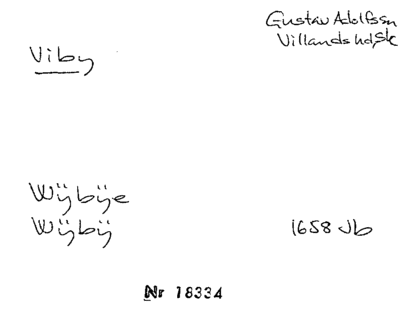 Gustav Adolfs sn
Villands hd, Sk
Viby
Wÿbÿe
Wÿbÿ 1658 Jb
Nr 18334